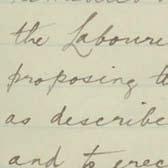 the Laboure
proposing t
as describe
and to erec